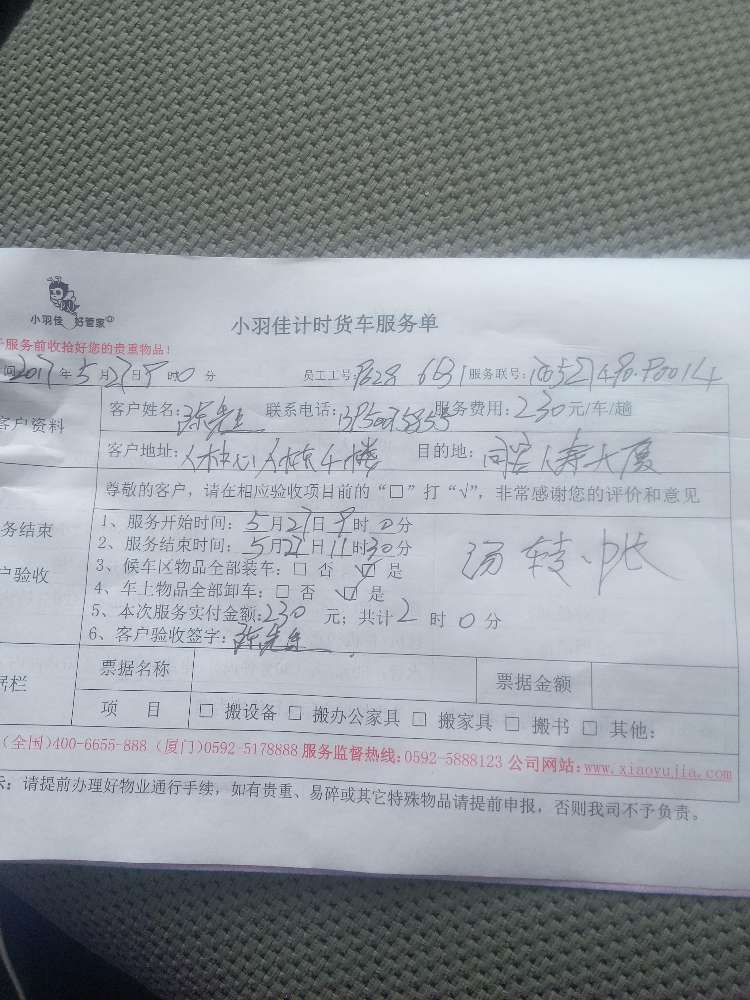 小羽佳 好管家
小羽佳计时货车服务单
服务前收拾好您的贵重物品!
间2017年5月27日9时0分 员工工号: 服务联号:
客户资料
客户姓名:陈先生 联系电话: 服务费用:230元/车/趟
客户地址: 目的地:同安人寿大厦
尊敬的客户,请在相应验收项目前的“□”打“√”,非常感谢您的评价和意见
务结束
户验收
1、服务开始时间:5月27日9时0分
2、服务结束时间:5月27日11时30分
3、候车区物品全部装车:□ 否 ☑ 是
4、车上物品全部卸车:□ 否 ☑ 是
5、本次服务实付金额:230元;共计2时0分
6、客户验收签字:陈先生
转帐
据栏
票据名称 票据金额
项 目 □ 搬设备 □ 搬办公家具 □ 搬家具 □ 搬书 □ 其他:
(全国)400-6655-888 (厦门)0592-5178888 服务监督热线:0592-5888123 公司网站:www.xiaoyujia.com
示:请提前办理好物业通行手续,如有贵重、易碎或其它特殊物品请提前申报,否则我司不予负责。